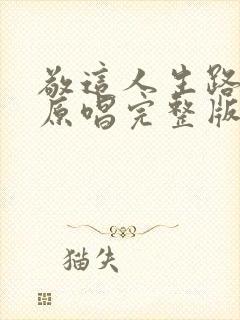 敬這人生路
原唱完整版
猫失